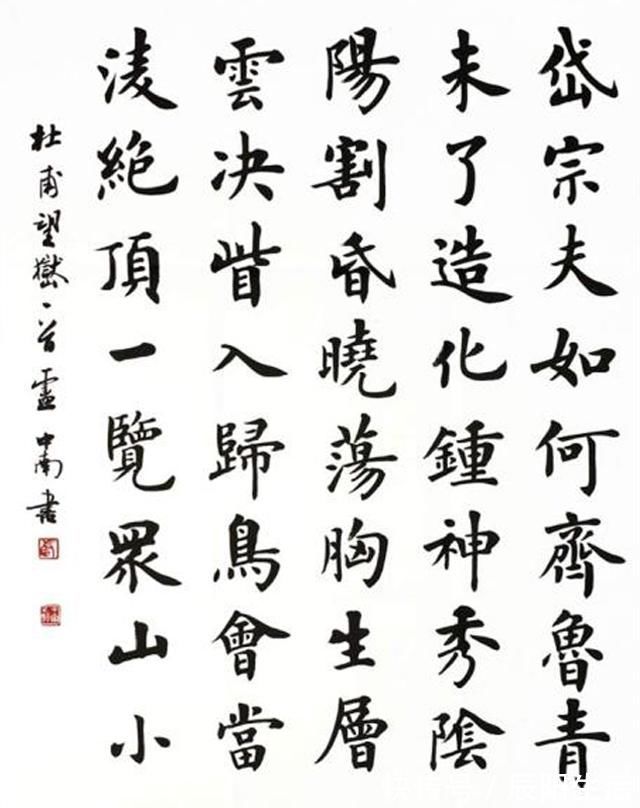 岱宗夫如何齊魯青
未了造化鍾神秀陰
陽割昏曉蕩胸生層
雲决眥入歸鳥會當
淩絶頂一覽眾山小
杜甫望嶽一首盧中南書